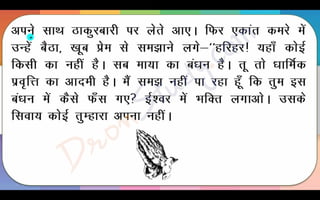 अपने साथ ठाकुरबारी पर लेते आए। फिर एकांत कमरे में
उन्हें बैठा, खूब प्रेम से समझाने लगे–"हरिहर! यहाँ कोई
किसी का नहीं है। सब माया का बंधन है। तू तो धार्मिक
प्रवृत्ति का आदमी है। मैं समझ नहीं पा रहा हूँ कि तुम इस
बंधन में कैसे फँस गए? ईश्वर में भक्ति लगाओ। उसके
सिवाय कोई तुम्हारा अपना नहीं।